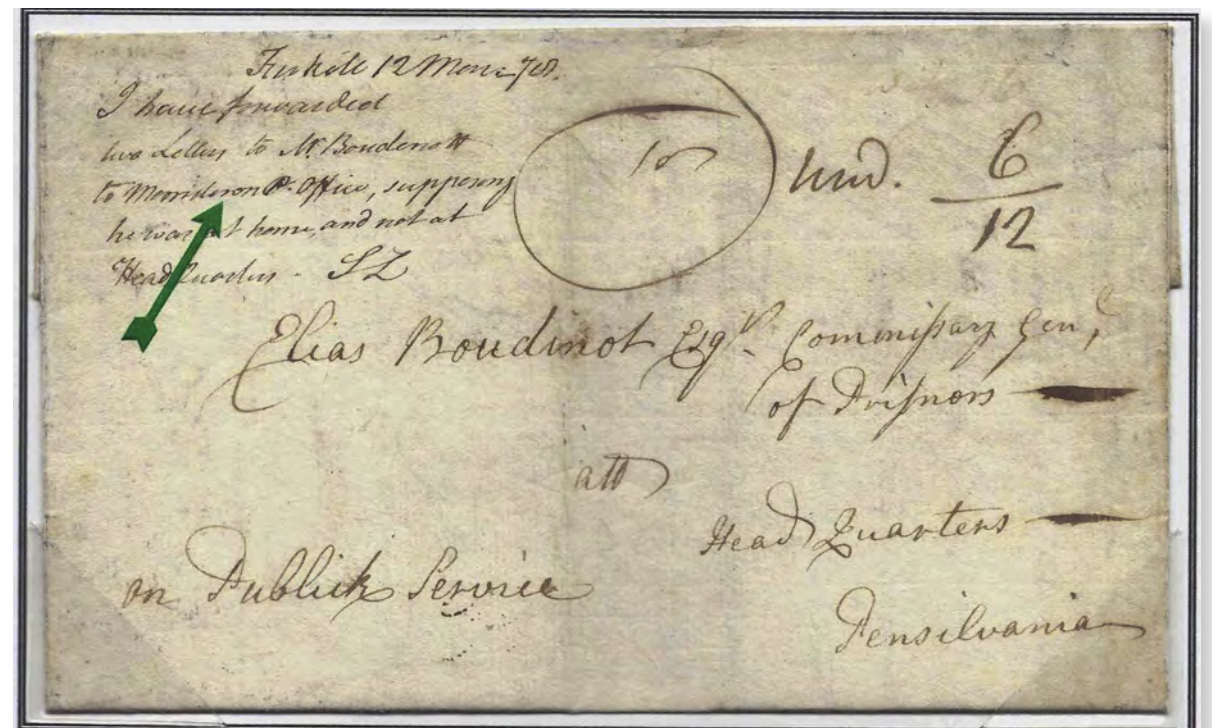 Fishkill 12 Mar: 78.
I have forwarded
two Letters to Mr. Boudenott
to Morristown P. Office, supposing
he was at home, and not at
Head Quarters - SZ
und. 6
12
Elias Boudinot Esqr. Commissary Genl
of Prisners
att
Head Quarters
on Publick Service
Pensilvania